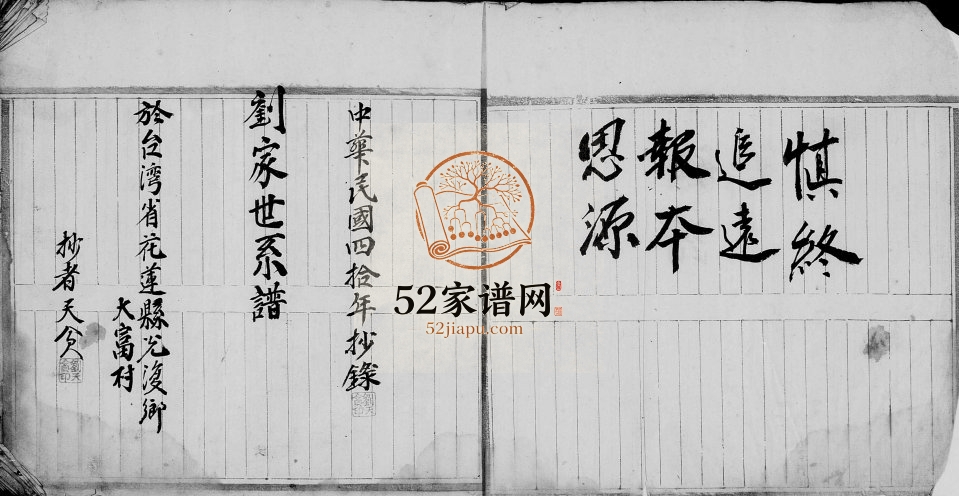 慎終
追遠
報本
思源
中華民國四拾年抄錄
劉家世系譜
於台湾省花蓮縣光復鄉
大富村
抄者天貟
52家谱网
52jiapu.com